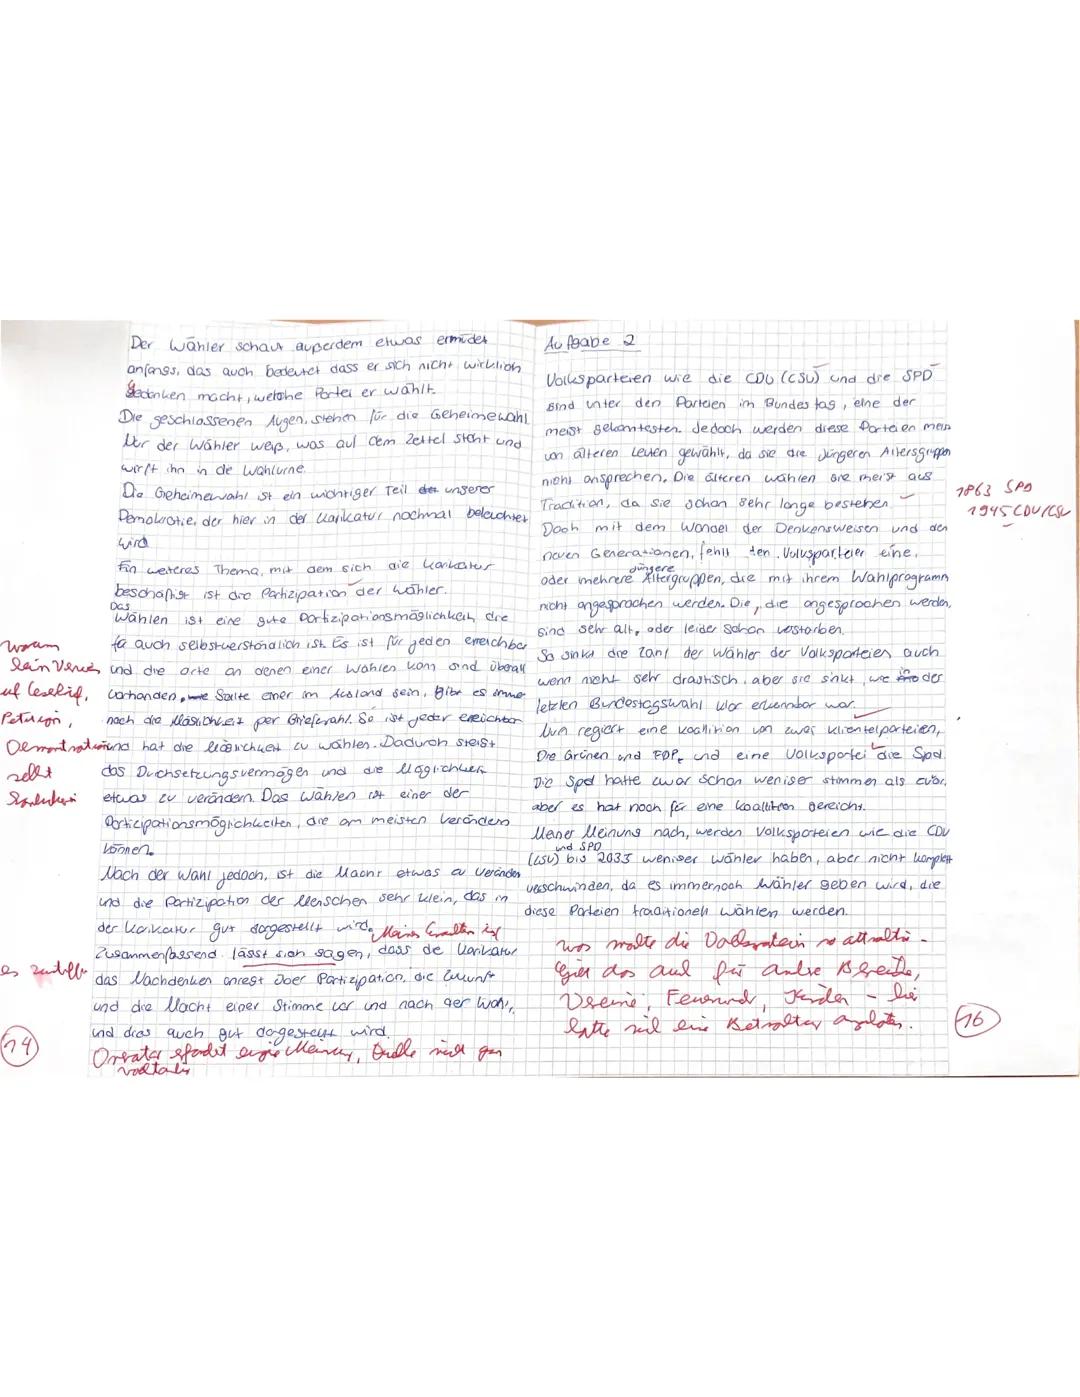 Der Wähler schaut außerdem etwas ermüdet
anfangs, das auch bedeutet dass er sich nicht wirklich
gedanken macht, welche Partei er wählt.
Die geschlossenen Augen, stehen für die Geheimewahl
Nur der Wähler weiß, was auf dem Zettel steht und
wirft ihn in die Wahlurne.
Die Geheimewahl ist ein wichtiger Teil unserer
Demokratie, der hier in der Karikatur nochmal beleuchtet
wird
Ein weiteres Thema, mit dem sich die Karikatur
beschäftigt ist die Partizipation der Wähler.
Das
Wählen ist eine gute Partizipationsmöglichkeit, die
ja auch selbstverständlich ist. Es ist für jeden erreichbar
warum
kein Verweis und die orte an denen einer Wählen kann sind überall
auf Leserbrief, vorhanden, Sollte einer im Ausland sein, gibt es immer
Petition, noch die Möglichkeit per Briefwahl. So ist jeder erreichbar
Demonstration und hat die Möglichkeit zu wählen. Dadurch steigt
selbst das Durchsetzungsvermögen und die Möglichkeit
etwas zu verändern. Das Wählen ist einer der
Partizipationsmöglichkeiten, die am meisten verändern
können.
Nach der Wahl jedoch, ist die Macht etwas zu verändern
und die Partizipation der Menschen sehr klein, das in
der Karikatur gut dargestellt wird.
Zusammenfassend lässt sich sagen, dass die Karikatur
das Nachdenken anregt über Partizipation, die Zukunft
und die Macht einer Stimme vor und nach der Wahl,
und dias auch gut dargestellt wird.
14
Aufgabe 2
Volksparteien wie die CDU (CSU) und die SPD
sind unter den Parteien im Bundestag, eine der
meist bekanntesten. Jedoch werden diese Parteien meist
von älteren Leuten gewählt, da sie die Jüngeren Altersgruppen
nicht ansprechen. Die älteren wählen sie meist aus
1863 SPD
Tradition, da sie schon sehr lange bestehen.
1945 CDU/CSU
Doch mit dem Wandel der Denkensweisen und den
neuen Generationen, fehlt den Volksparteien eine,
jüngere
oder mehrere Altergruppen, die mit ihrem Wahlprogramm
nicht angesprochen werden. Die, die angesprochen werden,
sind sehr alt, oder leider schon verstorben.
So sinkt die Zahl der Wähler der Volksparteien auch
wenn nicht sehr drastisch, aber sie sinkt, wie in der
letzten Bundestagswahl klar erkennbar war.
Nun regiert eine Koalition von zwei Klientelparteien,
Die Grünen und FDP, und eine Volkspartei die Spd.
Die Spd hatte zwar schon weniser stimmen als zuvor,
aber es hat noch für eine Koalition gereicht.
Meiner Meinung nach, werden Volksparteien wie die CDU
und SPD
(CSU) bis 2033 weniser Wähler haben, aber nicht komplett
verschwinden, da es immernoch Wähler geben wird, die
diese Parteien traditionell wählen werden.
was machte die Volksparteien so attraktiv -
Vereine, Feuerwehr, Kinder - hier
hätte sich eine Betrachtung angeboten.
16